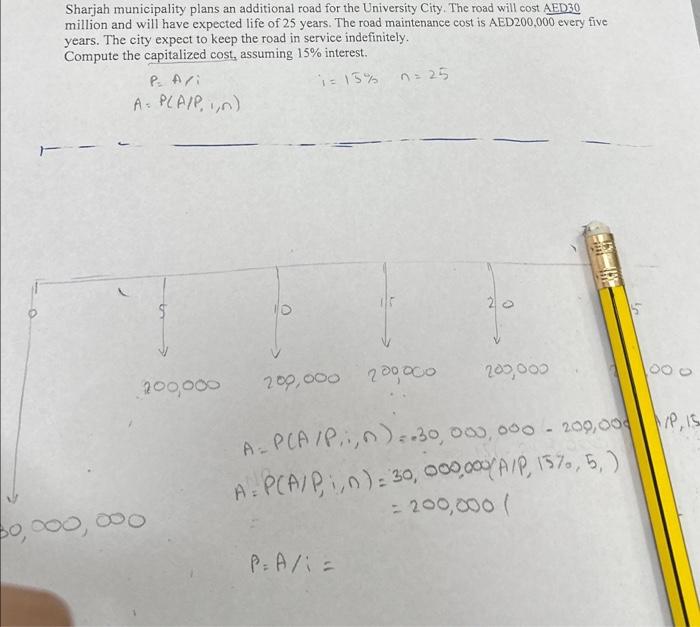 Sharjah municipality plans an additional road for the University City. The road will cost AED30
million and will have expected life of 25 years. The road maintenance cost is AED200,000 every five
years. The city expect to keep the road in service indefinitely.
Compute the capitalized cost, assuming 15% interest.
P= A/i i=15% n=25
A= P(A/P, i,n)
0 5 10 15 20 5
200,000 200,000 200,000 200,000 ,000
A=P(A/P,i,n)=30,000,000 - 200,000 /P,15
A=P(A/P,i,n)=30,000,000(A/P,15%,5,)
=200,000(
30,000,000
P=A/i=